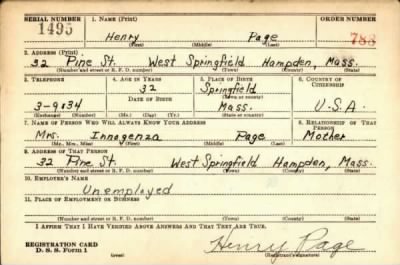 SERIAL NUMBER 1. NAME (Print) ORDER NUMBER
1495 Henry Page 788
(First) (Middle) (Last)
2. ADDRESS (Print)
32 Pine St. West Springfield Hampden, Mass.
(Number and street or R. F. D. number) (Town) (County) (State)
3. TELEPHONE 4. AGE IN YEARS 5. PLACE OF BIRTH 6. COUNTRY OF CITIZENSHIP
32 Springfield
DATE OF BIRTH (Town or county)
3-9134 Mass. U.S.A.
(Exchange) (Number) (Mo.) (Day) (Yr.) (State or country)
7. NAME OF PERSON WHO WILL ALWAYS KNOW YOUR ADDRESS 8. RELATIONSHIP OF THAT PERSON
Mrs. Innogenza Page Mother
(Mr., Mrs., Miss) (First) (Middle) (Last)
9. ADDRESS OF THAT PERSON
32 Pine St. West Springfield Hampden, Mass.
(Number and street or R. F. D. number) (Town) (County) (State)
10. EMPLOYER'S NAME
Unemployed
11. PLACE OF EMPLOYMENT OR BUSINESS
(Number and street or R. F. D. number) (Town) (County) (State)
I AFFIRM THAT I HAVE VERIFIED ABOVE ANSWERS AND THAT THEY ARE TRUE.
REGISTRATION CARD Henry Page
D. S. S. Form 1 (over) (Registrant's signature)